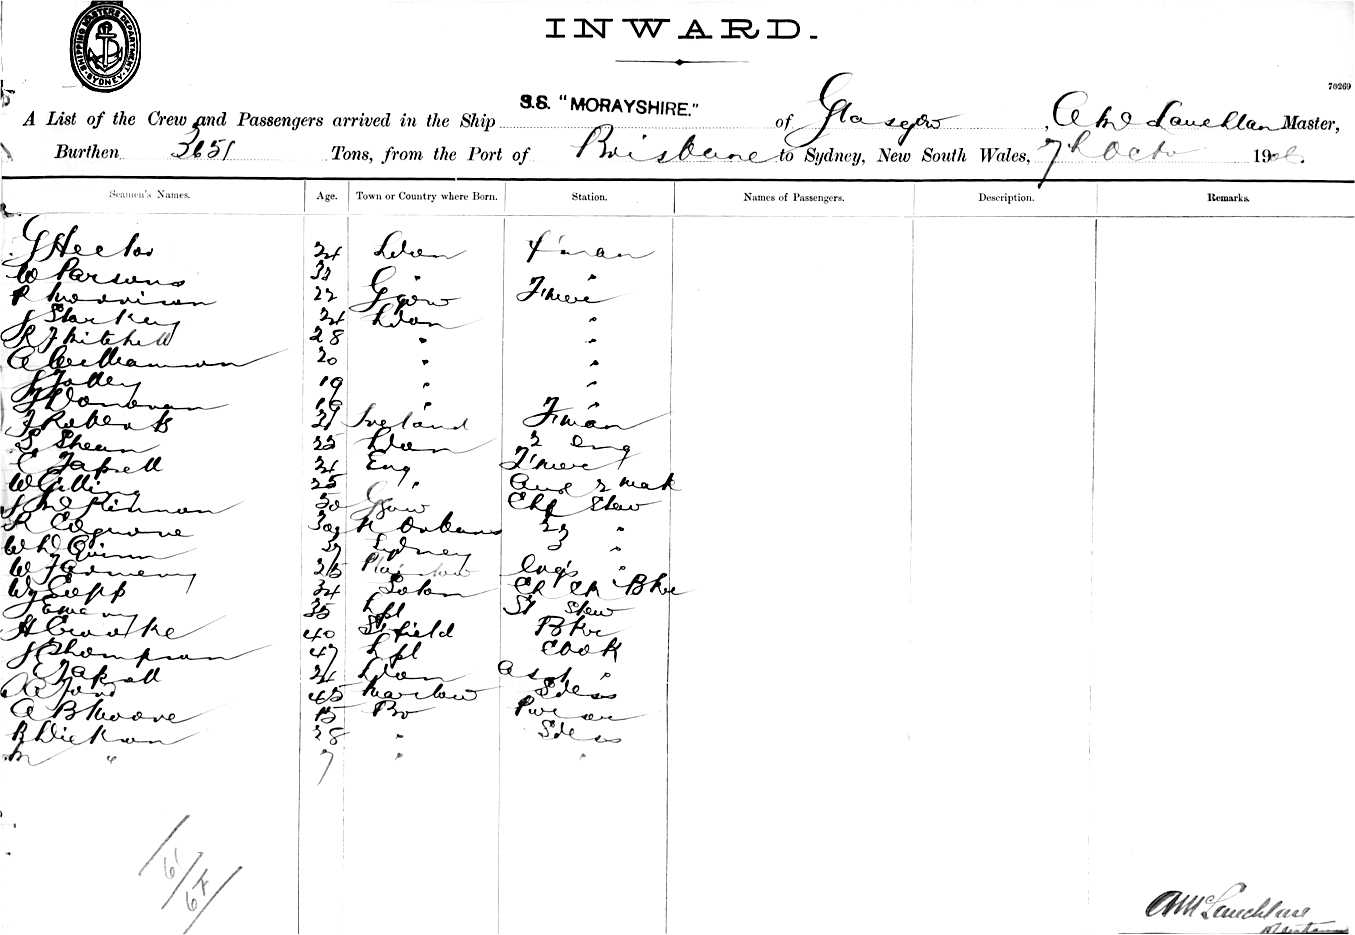 SHIPPING MASTERS DEPARTMENT. SYDNEY.
INWARD.
70269
A List of the Crew and Passengers arrived in the Ship S.S. "MORAYSHIRE." of Glasgow, A McLauchlan Master,
Burthen 3651 Tons, from the Port of Brisbane to Sydney, New South Wales, 7th Octo 190
Seamen's Names. Age. Town or Country where Born. Station. Names of Passengers. Description. Remarks.
J Hector 24 Ldon F'man
W Parsons 32 " "
R Morrison 22 Ggow T'mer
J Starkey 24 Ldon "
R J Mitchell 28 " "
A Williamson 20 " "
J Talley 19 " "
J Donovan 19 " "
J Roberts 29 Ireland F'man
S Shean 25 Ldon 2 Eng
E Tapsell 21 Eng T'mer
W Gilling 25 " and 2 mak
J McKinnon 30 Ggow Chf Stew
R Cosgrove 30 N Orleans 2d "
W D Quinn 37 Sydney 3 "
W J 25 Engs "
W J Copp 34 Soton Ch Ck Bkr
J Emery 35 Lpl St Stew
H Crooke 40 Sfield Bkr
J Thompson 47 Lpl Cook
E Tapsell 21 Ldon Asst "
A Ford 45 Marlow Sdess
A B Moore Bo Purser
R Dickson 38 " Sdess
M " 7 " "
61/64
A McLauchlan